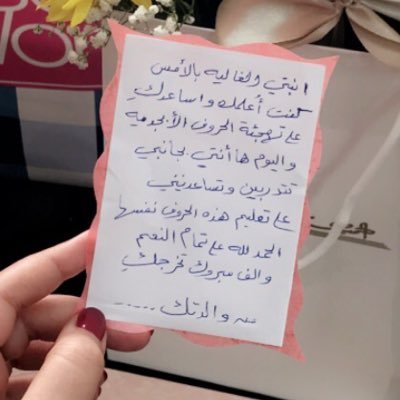 ابنتي الغاليه بالأمس
كنت أعلمك واساعدكِ
على تهجئة الحروف الأبجديه
واليوم ها أنتي بجانبي
تتدربين وتساعديني
على تعليم هذه الحروف نفسها
الحمد لله على تمام النعم
والف مبروك تخرجكِ
والدتك ......